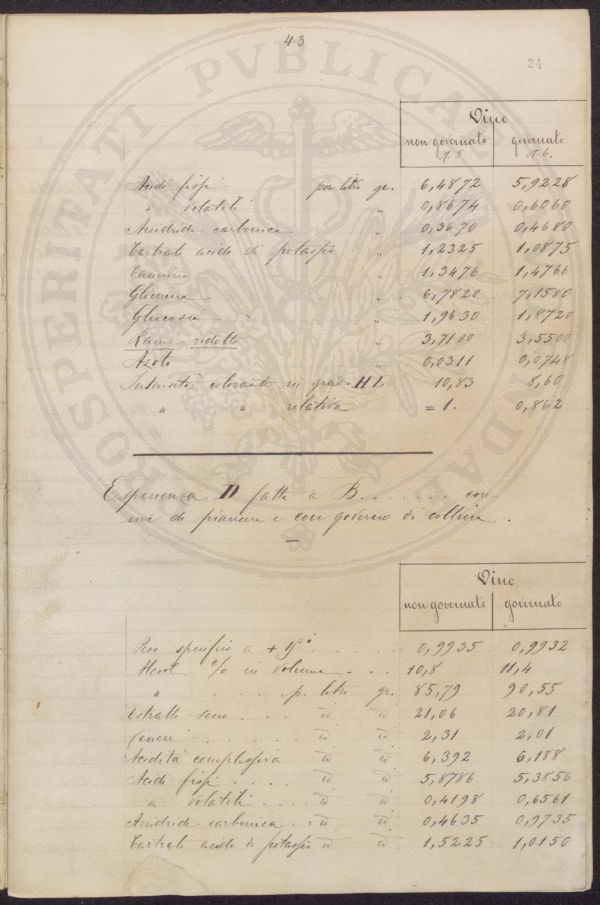 43
24
Vino
non governato governato
N. 5. N. 6.
Acidi fissi per litro gr. 6,4872 5,9228
" volatili " 0,8674 0,6060
Anidride carbonica " 0,3670 0,4680
Tartrato acido di potassio " 1,2325 1,0875
Tannino " 1,3476 1,4766
Glicerina " 6,7820 7,1580
Glucosio " 1,9630 1,8720
Rame ridotto " 3,7100 3,5500
Azoto " 0,0311 0,0748
Intensità colorante in gradi H I. 10,83 8,60
" " relativa = 1. 0,862
Esperienza D fatta a B. . . . . . . con
uve di pianura e con governo di collina.
Vino
non governato governato
Peso specifico a + 15° . . . . . 0,9935 0,9932
Alcool % in volume . . . 10,8 11,4
" . . . . . p. litro gr. 85,79 90,55
Estratto secco . . . id id 21,06 20,81
Ceneri . . . . . id id 2,31 2,01
Acidità complessiva id id 6,392 6,188
Acidi fissi . . . . id id 5,8786 5,3856
" volatili . . . id id 0,4198 0,6561
Anidride carbonica . . id id 0,4635 0,9735
Tartrato acido di potassio id id 1,5225 1,0150
PROSPERITATI PVBLICAE